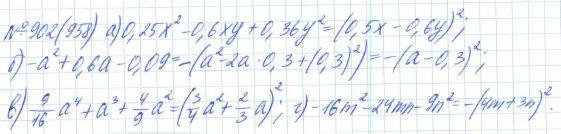 №902(958) а) 0,25x² - 0,6xy + 0,36y² = (0,5x - 0,6y)²;
б) -a² + 0,6a - 0,09 = -(a² - 2a · 0,3 + (0,3)²) = -(a - 0,3)²;
в) 9/16 a⁴ + a³ + 4/9 a² = (3/4 a² + 2/3 a)²; г) -16m² - 24mn - 9n² = -(4m + 3n)².